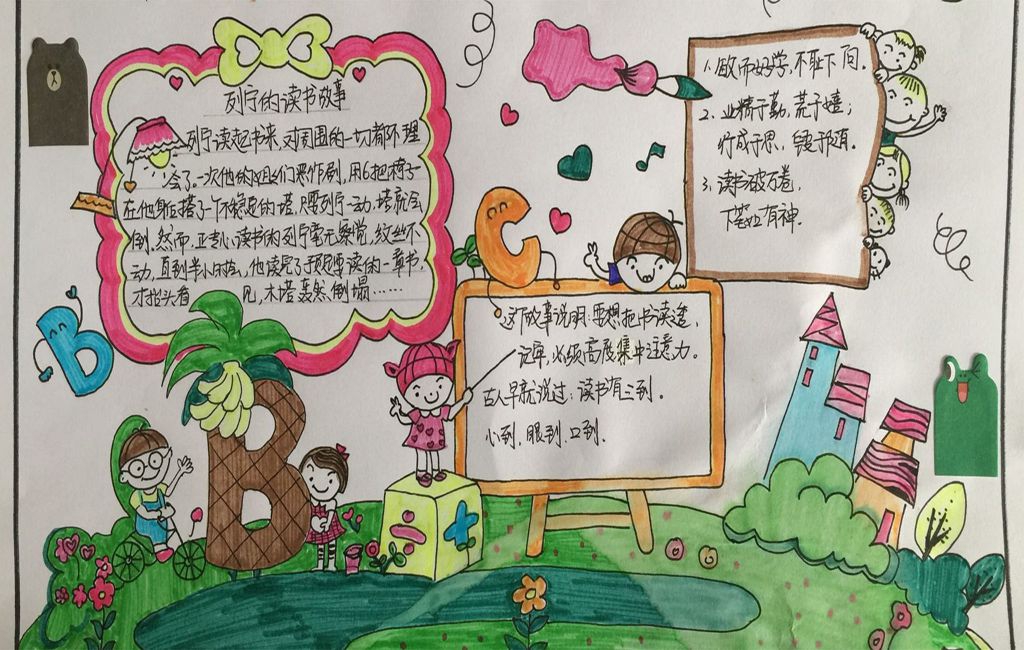 列宁的读书故事
列宁读起书来,对周围的一切都不理
会了。一次他的姐妹们恶作剧,用6把椅子
在他身后搭了一个不稳定的塔,只要列宁一动,塔就会
倒。然而,正专心读书的列宁毫无察觉,纹丝不
动,直到半小时后,他读完了预定要读的一章书,
才抬头看 见,木塔轰然倒塌……
这个故事说明:要想把书读透,
记牢,必须高度集中注意力。
古人早就说过:读书有三到。
心到,眼到,口到。
1.敏而好学,不耻下问。
2.业精于勤,荒于嬉;
行成于思,毁于随。
3.读书破万卷,
下笔如有神。
B
B
C
÷
+